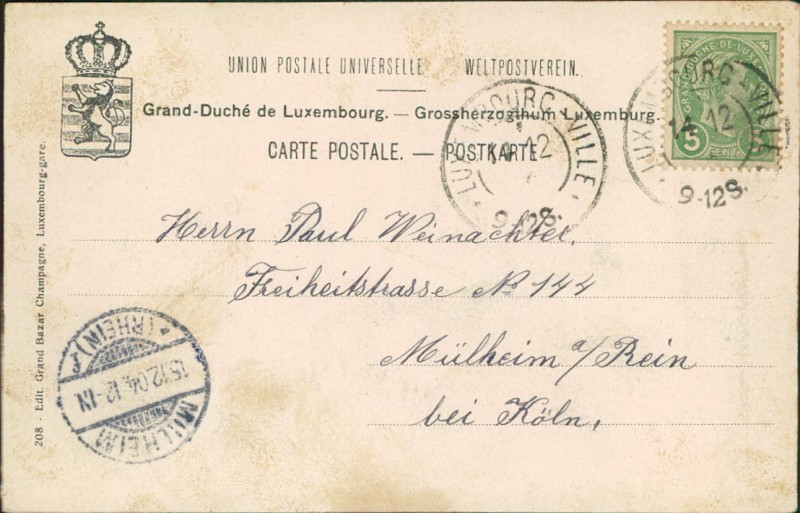 UNION POSTALE UNIVERSELLE WELTPOSTVEREIN.
Grand-Duché de Luxembourg. — Grossherzogthum Luxemburg.
CARTE POSTALE. — POSTKARTE
LUXEMBOURG-VILLE
14 12
9-12S.
LUXEMBOURG-VILLE
14 12
9-12S.
GRAND DUCHE-DE-LUXEM
5
Herrn Paul Weinachter,
Freiheitstrasse № 144
Mülheim a/Rein
bei Köln,
208 - Edit. Grand Bazar Champagne, Luxembourg-gare.
MÜLHEIM
15.12.04. 12-1N.
* (RHEIN) r